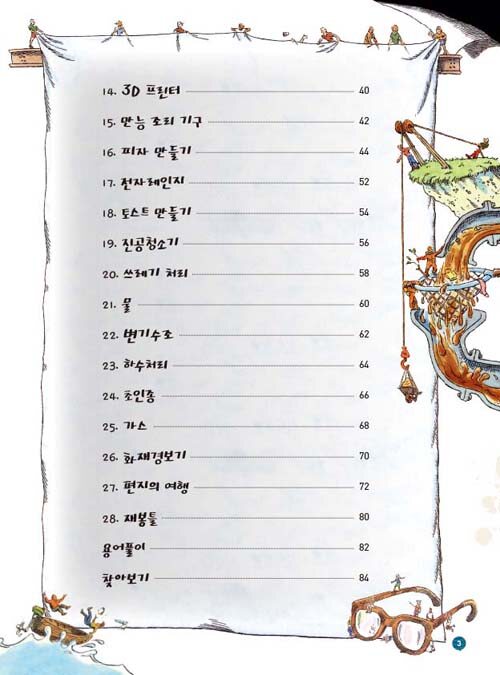 14. 3D 프린터 40
15. 만능 조리 기구 42
16. 피자 만들기 44
17. 전자레인지 52
18. 토스트 만들기 54
19. 진공청소기 56
20. 쓰레기 처리 58
21. 물 60
22. 변기수조 62
23. 하수처리 64
24. 초인종 66
25. 가스 68
26. 화재경보기 70
27. 편지의 여행 72
28. 재봉틀 80
용어풀이 82
찾아보기 84
3